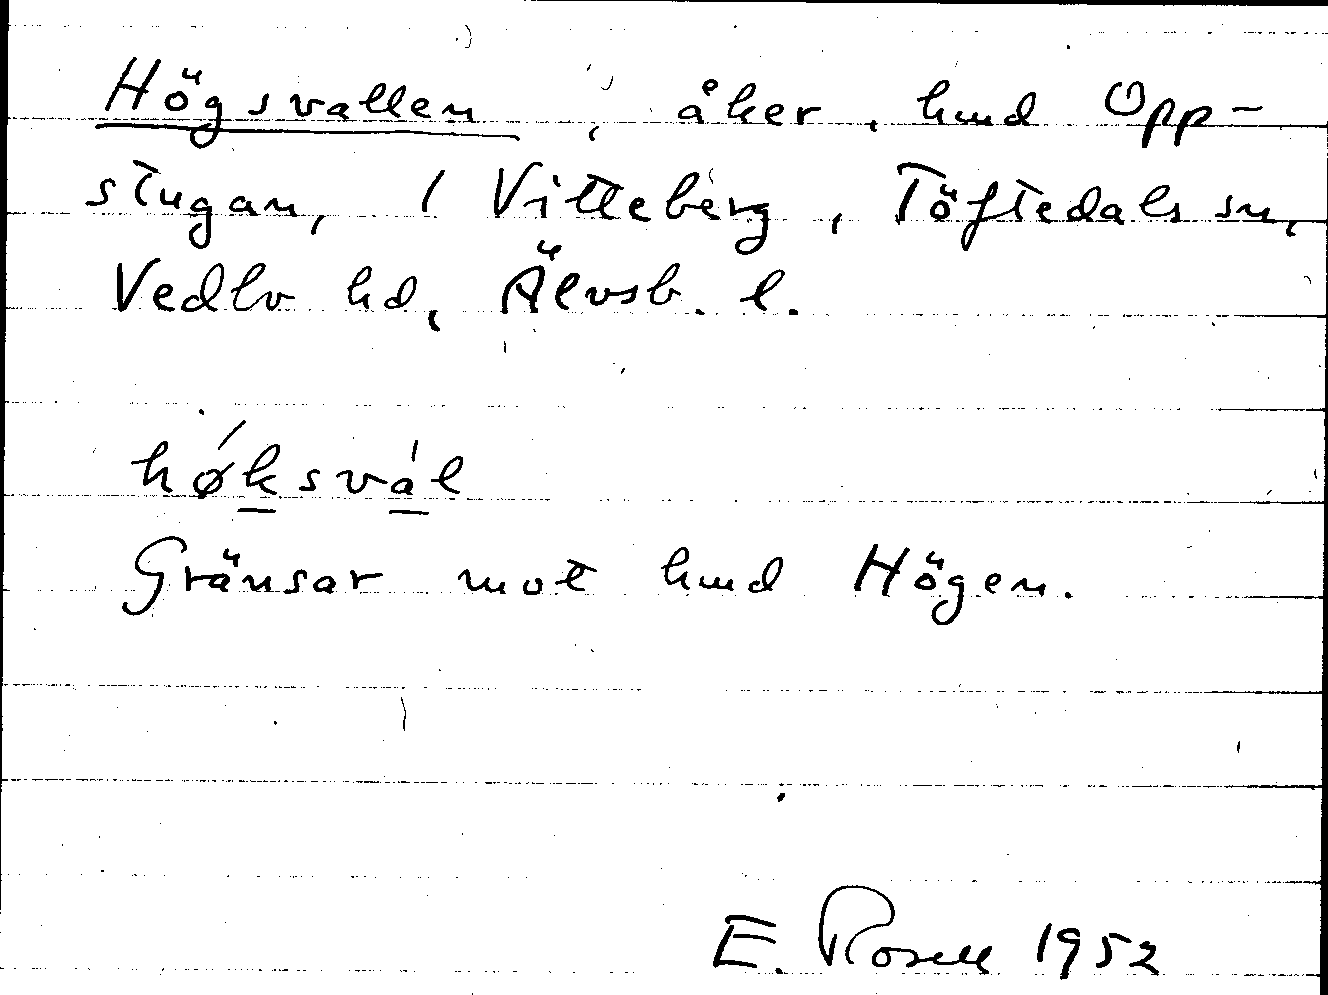 Högsvallen, åker, hmd Opp-
stugan, 1 Vitteberg, Töftedals sn,
Vedbo hd, Älvsb. l.
høksvàl
Gränsar mot hmd Högen.
E. Rosell 1952